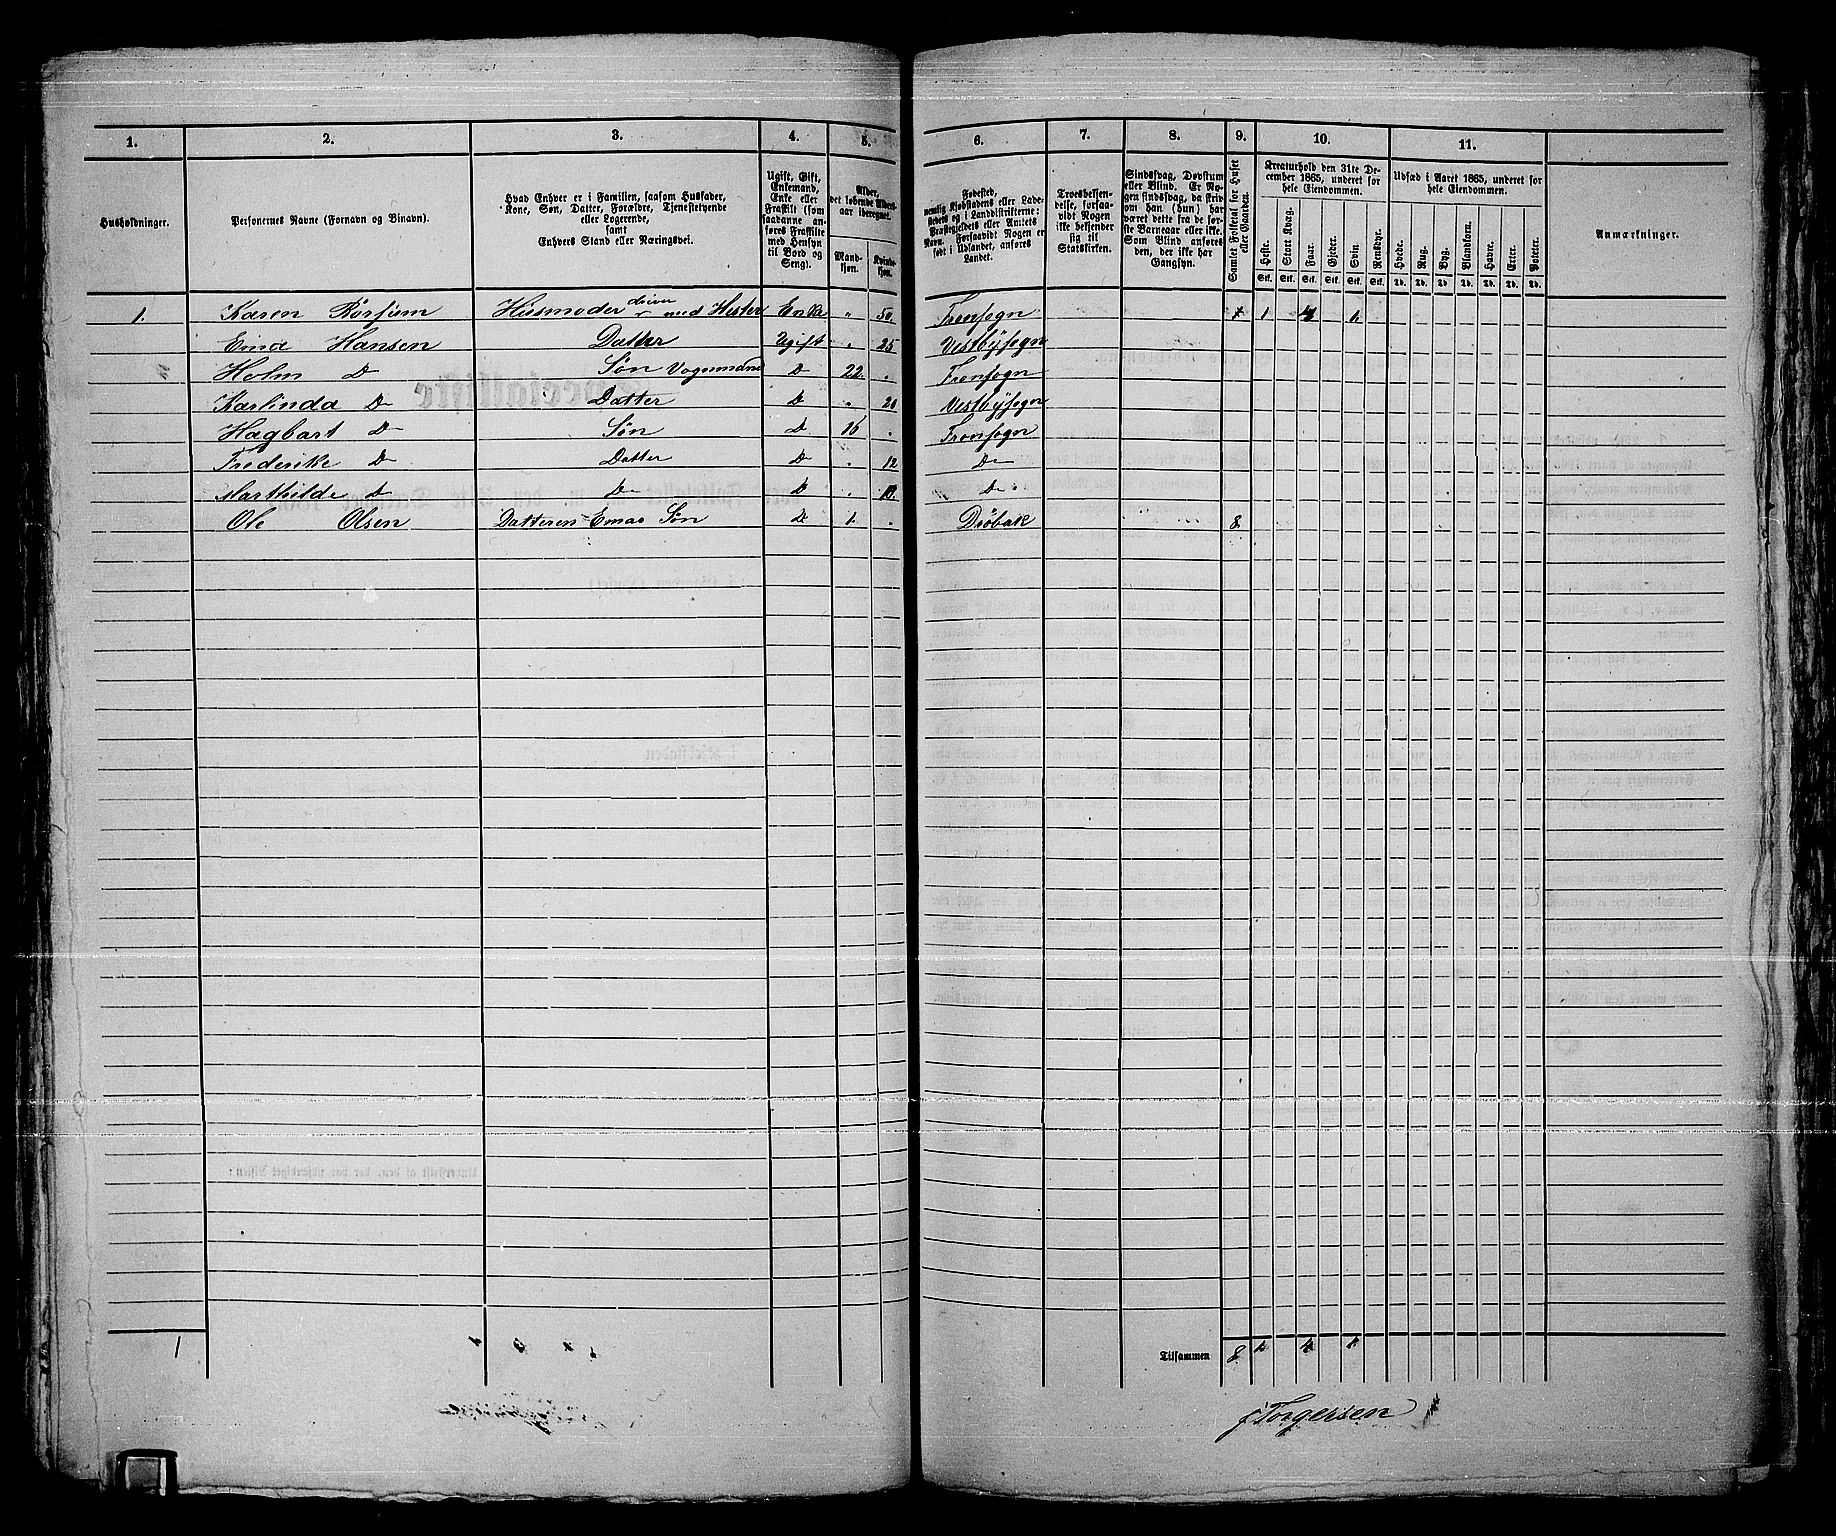 1. 2. 3. 4. 5. 6. 7. 8. 9. 10. 11.
Husholdninger.
Personernes Navne (Fornavn og Binavn).
Hvad Enhver er i Familien, saasom Husfader,
Kone, Søn, Datter, Forældre, Tjenestetyende
eller Logerende,
samt
Enhvers Stand eller Næringsvei.
Ugift, Gift,
Enkemand,
Enke eller
Fraskilt (som
saadanne an-
føres Fraskilte
med Hensyn
til Bord og
Seng).
Alder,
det løbende Alders-
aar iberegnet.
Mand-
kjøn.
Kvinde-
kjøn.
Fødested,
nemlig Kjøbstadens eller Lade-
stedets og i Landdistrikterne:
Præstegjeldets eller Amtets
Navn. Forsaavidt Nogen er
født i Udlandet, anføres
Landet.
Troesbekjen-
delse, forsaa-
vidt Nogen
ikke bekjender
sig til
Statskirken.
Sindssvag, Døvstum
eller Blind. Er No-
gen sindssvag, da skriv
om han (hun) har
været dette fra de før-
ste Barneaar eller ikke.
Som Blind anføres
den, der ikke har
Gangsyn.
Samlet Folketal for Huset
eller Gaarden.
Kreaturhold den 31te De-
cember 1865, underet for
hele Eiendommen.
Heste. Stort Kvæg. Faar. Gjeder. Svin. Rensdyr.
Stk. Stk. Stk. Stk. Stk. Stk.
Udsæd i Aaret 1865, underet for
hele Eiendommen.
Hvede. Rug. Byg. Blandkorn. Havre. Erter. Poteter.
Td. Td. Td. Td. Td. Td. Td.
Anmærkninger.
1. Karen Rørsium Husmoder driver med Hester Enke " 50. Fronsogn 1 4 1.
Ema Hansen Datter Ugift " 25 Vestbysogn
Holm D Søn Vognmand D 22. . Fronsogn
Karlinda D Datter D " 20 Vestbysogn
Hagbart D Søn D. 16 . Fronsogn
Frederike D Datter D " 12 D
Marthilde D D D " 10. D
Ole Olsen Datteren Emas Søn D 1. . Drøbak 8.
1
Tilsammen 8. 1. 4. 1.
Torgersen